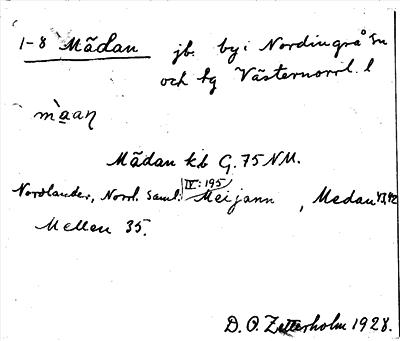 1-8 Mädan jb. by i Nordingrå sn
och hg Västernorrl. l
m̀a̱aꞃ
Mädan kb G. 75 NM.
Nordlander, Norrl. Saml. IV:195 Meijann, Medan 43,42
Mellen 35.
D. O. Zetterholm 1928.